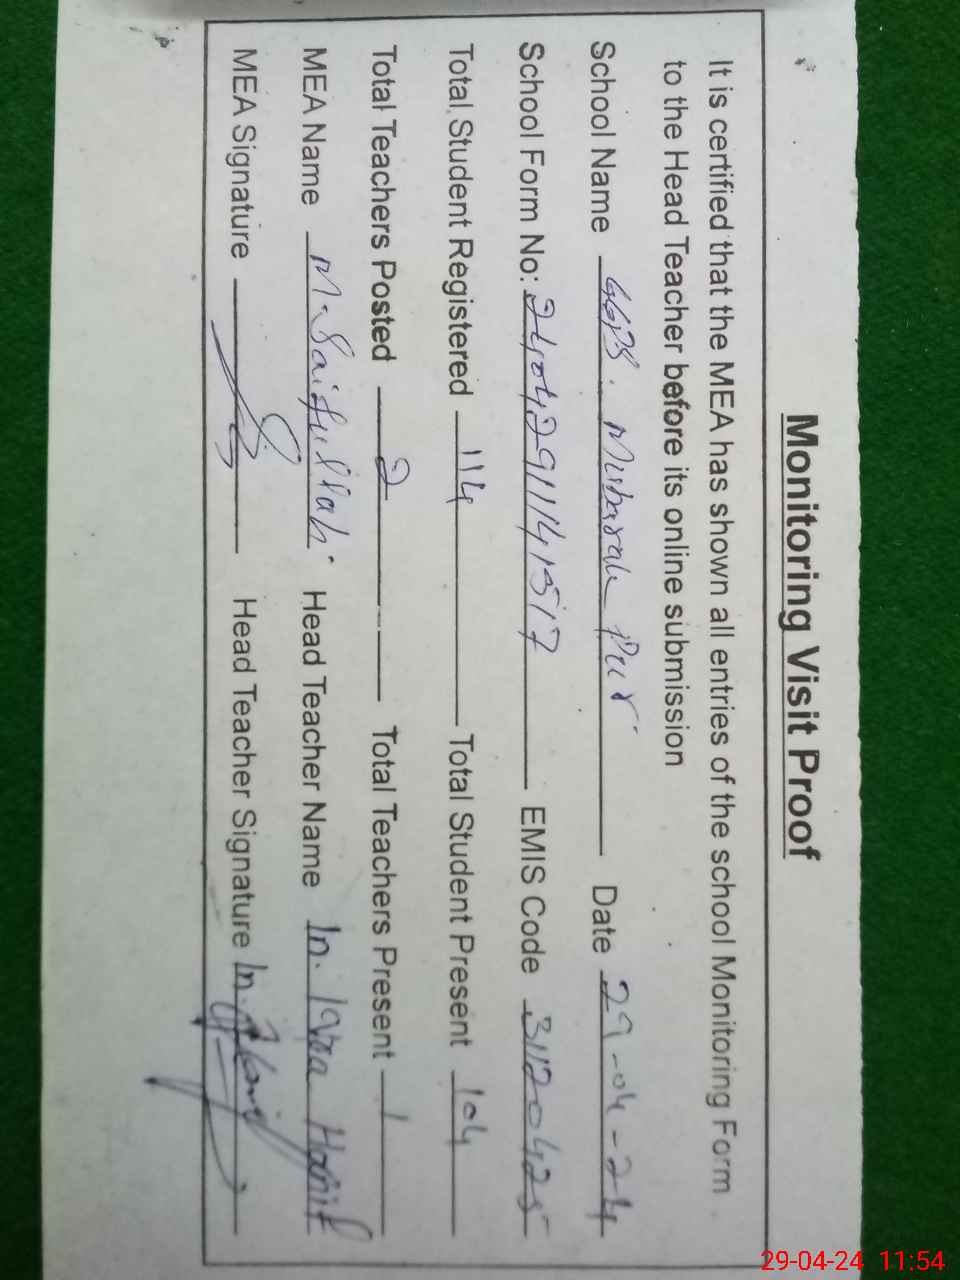 Monitoring Visit Proof
It is certified that the MEA has shown all entries of the school Monitoring Form
to the Head Teacher before its online submission
School Name GGPS. Mubarak Pur Date 29-04-24
School Form No: EMIS Code 31120425
Total Student Registered 114 Total Student Present 104
Total Teachers Posted 2 Total Teachers Present 1
MEA Name M. Saifullah Head Teacher Name Iqra Hanif
MEA Signature Head Teacher Signature
29-04-24 11:54